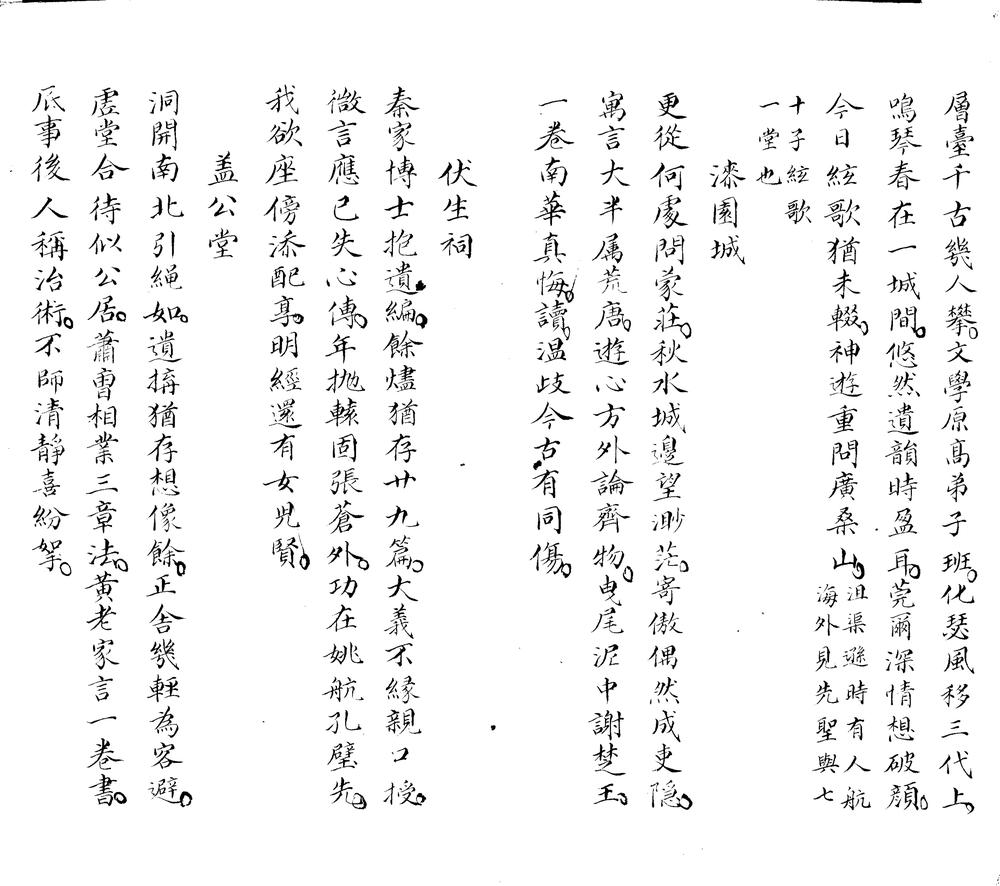 層臺千古幾人攀。文學原高弟子班。化瑟風移三代上。
鳴琴春在一城間。悠然遺韻時盈耳。莞爾深情想破顏。
今日絃歌猶未輟。神遊重問廣桑山。沮渠遜時有人航
海外見先聖與七
十子絃歌
一堂也
漆園城
更從何處問蒙莊。秋水城邊望渺茫。寄傲偶然成吏隱。
寓言大半属荒唐。遊心方外論齊物。曳尾泥中謝楚王。
一卷南華真悔讀。温歧今古有同傷。
伏生祠
秦家博士抱遺編。餘燼猶存廿九篇。大義不緣親口授。
微言應已失心傳。年抛轅固張蒼外。功在姚航孔壁先。
我欲座傍添配享。明經還有女兒賢。
盖公堂
洞開南北引繩如。遺搆猶存想像餘。正舍幾輕為客避。
虛堂合待似公居。蕭曺相業三章法。黃老家言一卷書。
底事後人稱治術。不師清靜喜紛挐。